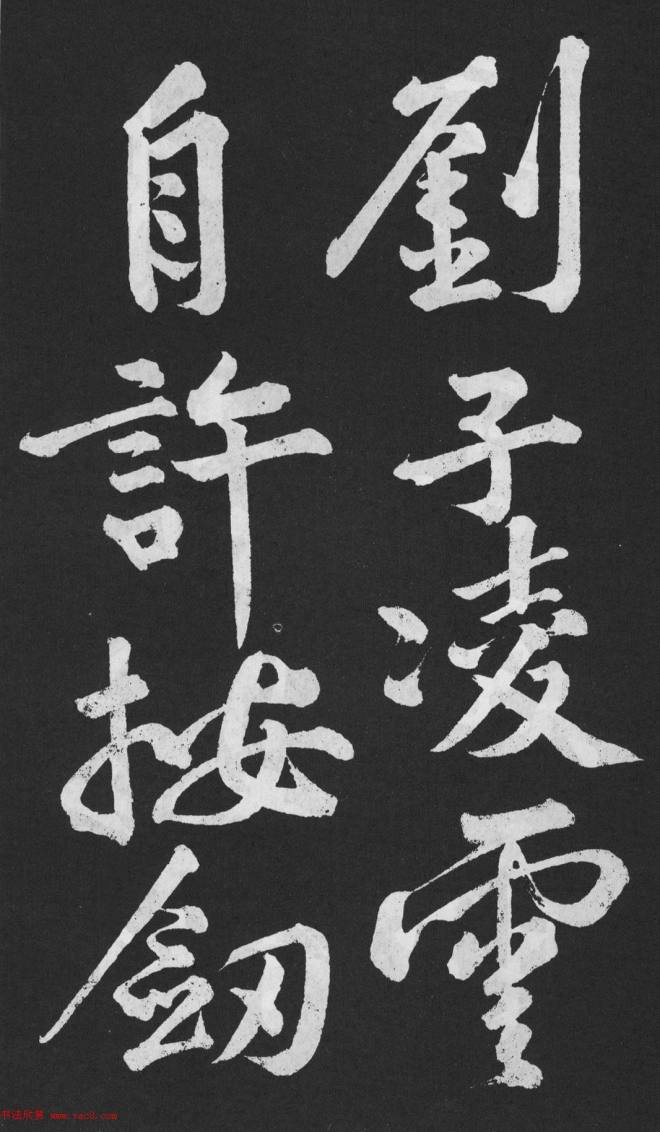 劉子凌雲
自許按劒
书法欣赏 www.yac8.com